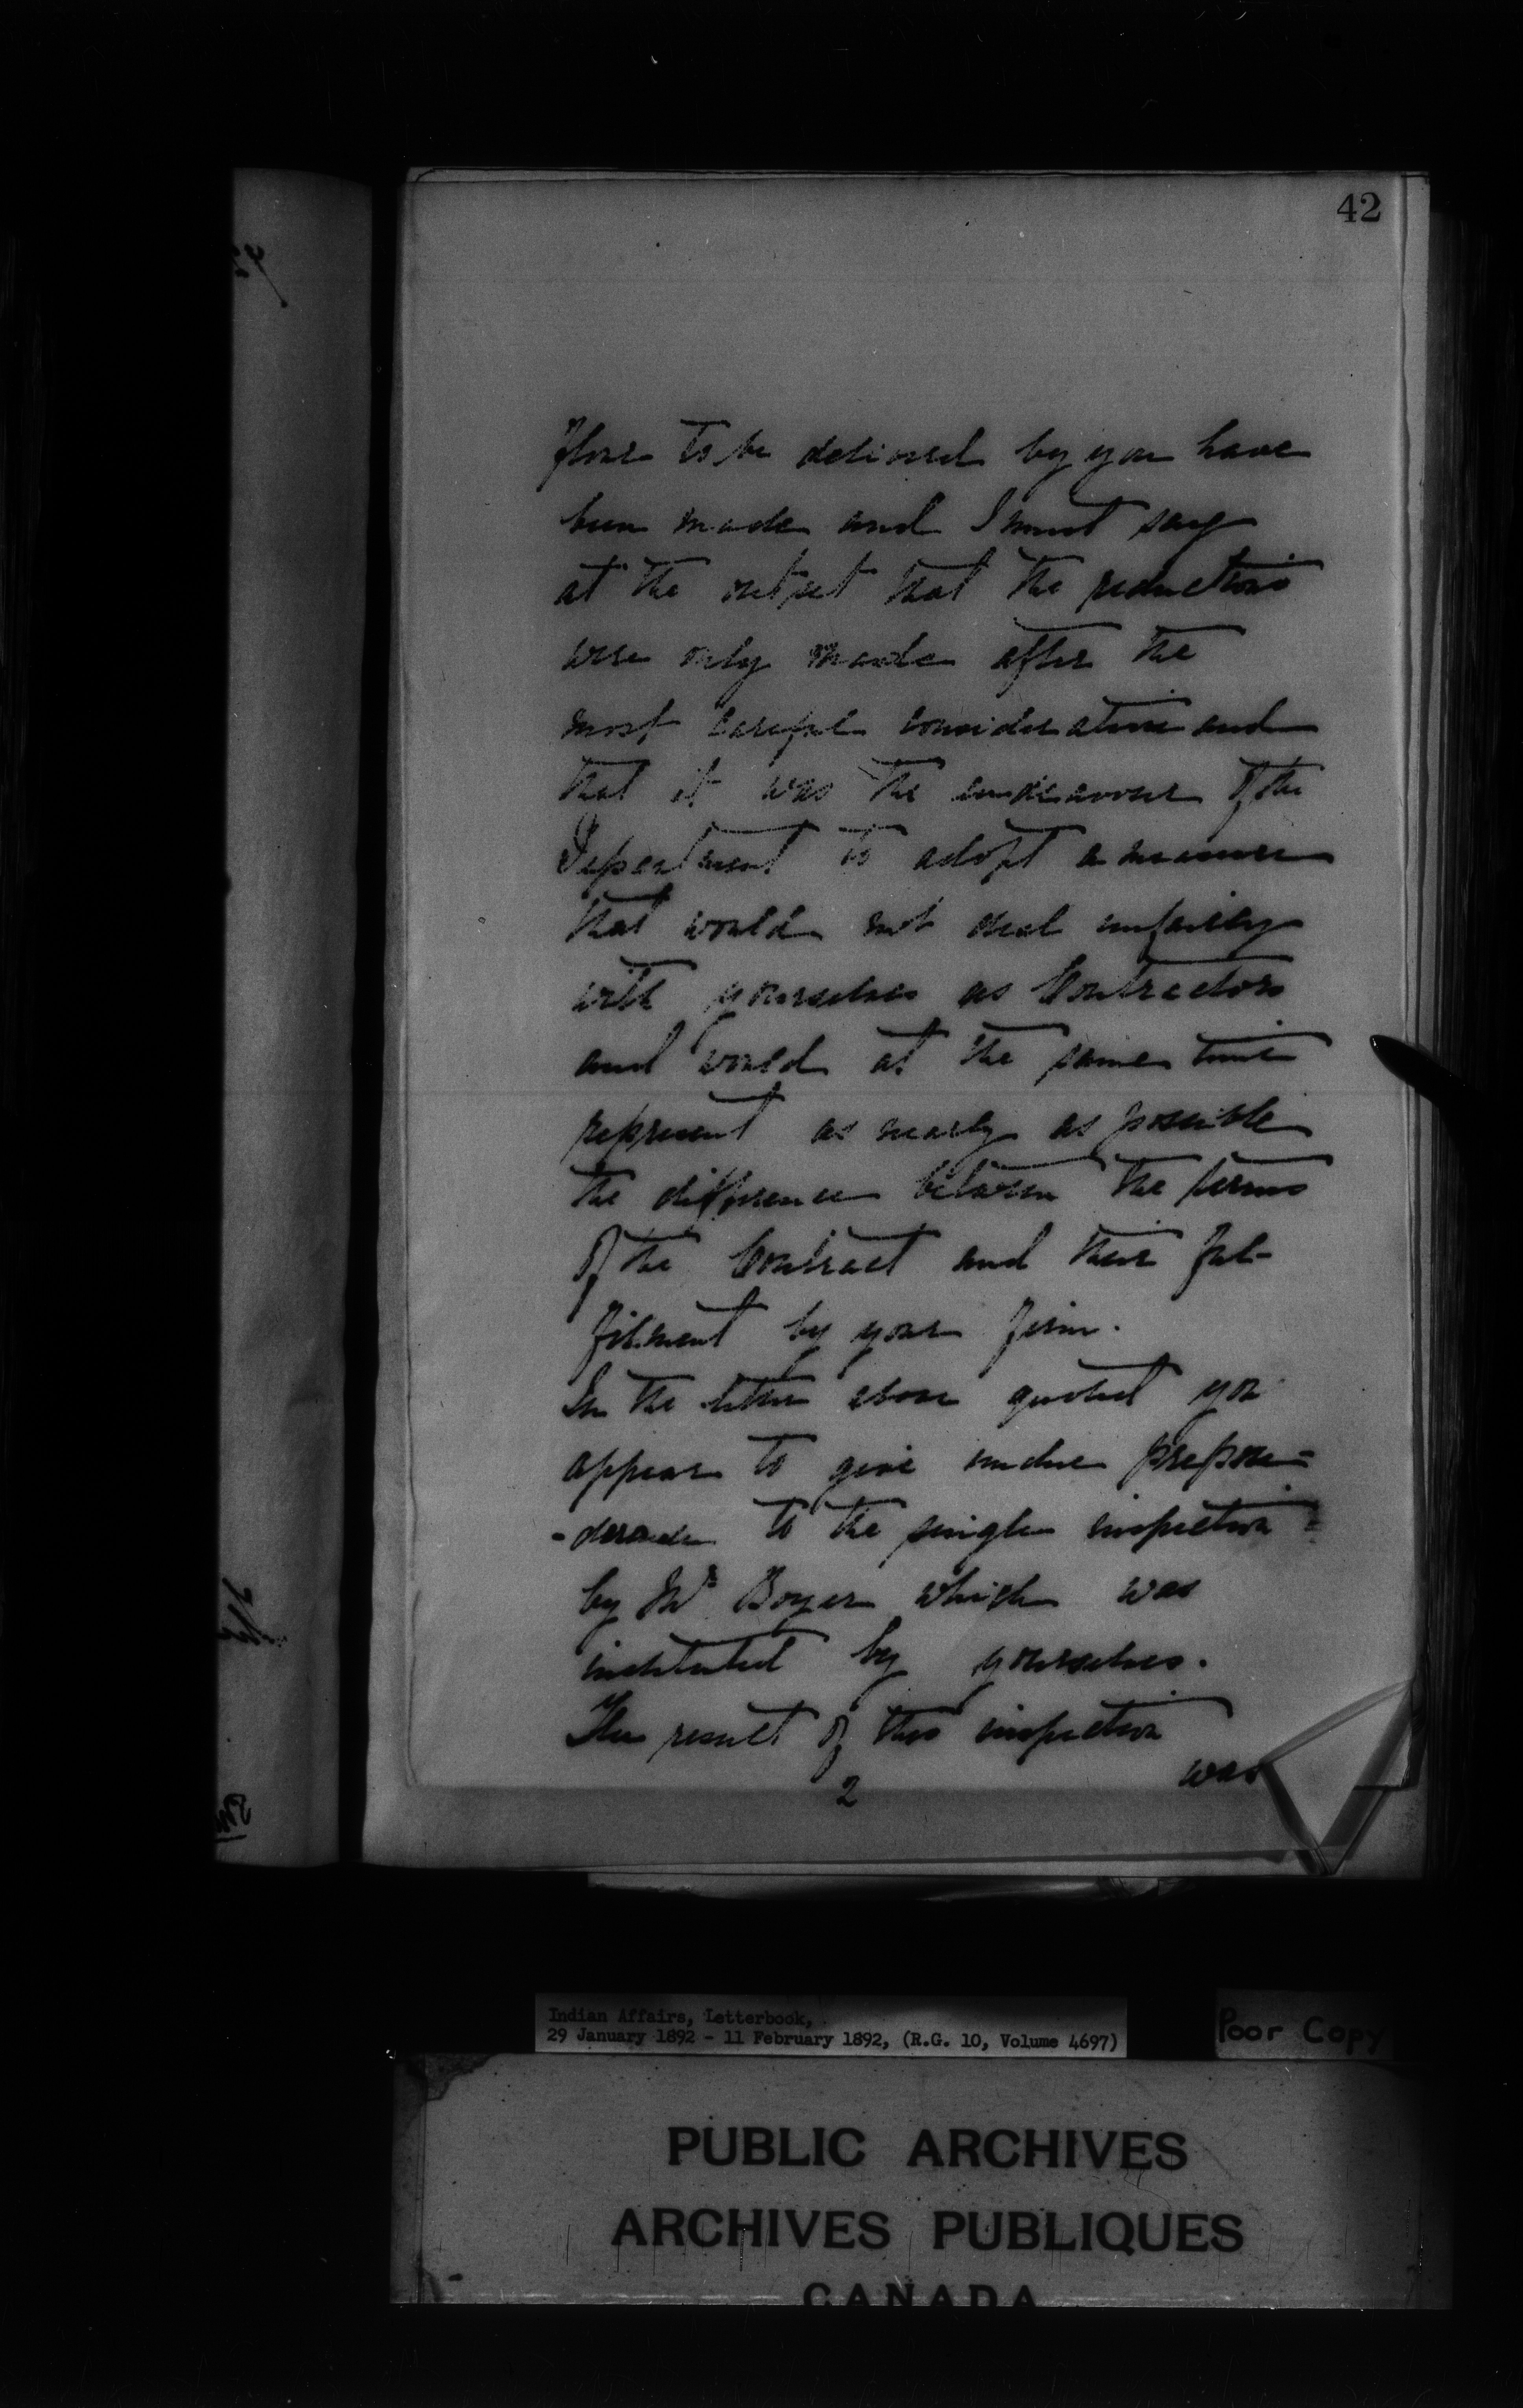 42
flour to be delivered by you have
been made and I must say
at the outset that the reductions
were only made after the
most careful consideration and
that it was the endeavour of the
Department to adopt a measure
that would not deal unfairly
with yourselves as Contractors
and would at the same time
represent as nearly as possible
the difference between the terms
of the Contract and their ful-
filment by your firm.
In the letter above quoted you
appear to give undue prepon-
-derance to the single inspection
by Mr Boyer which was
instituted by yourselves.
The result of this inspection
2 was
Indian Affairs, Letterbook,
29 January 1892 - 11 February 1892, (R.G. 10, Volume 4697)
Poor Copy
PUBLIC ARCHIVES
ARCHIVES PUBLIQUES
CANADA